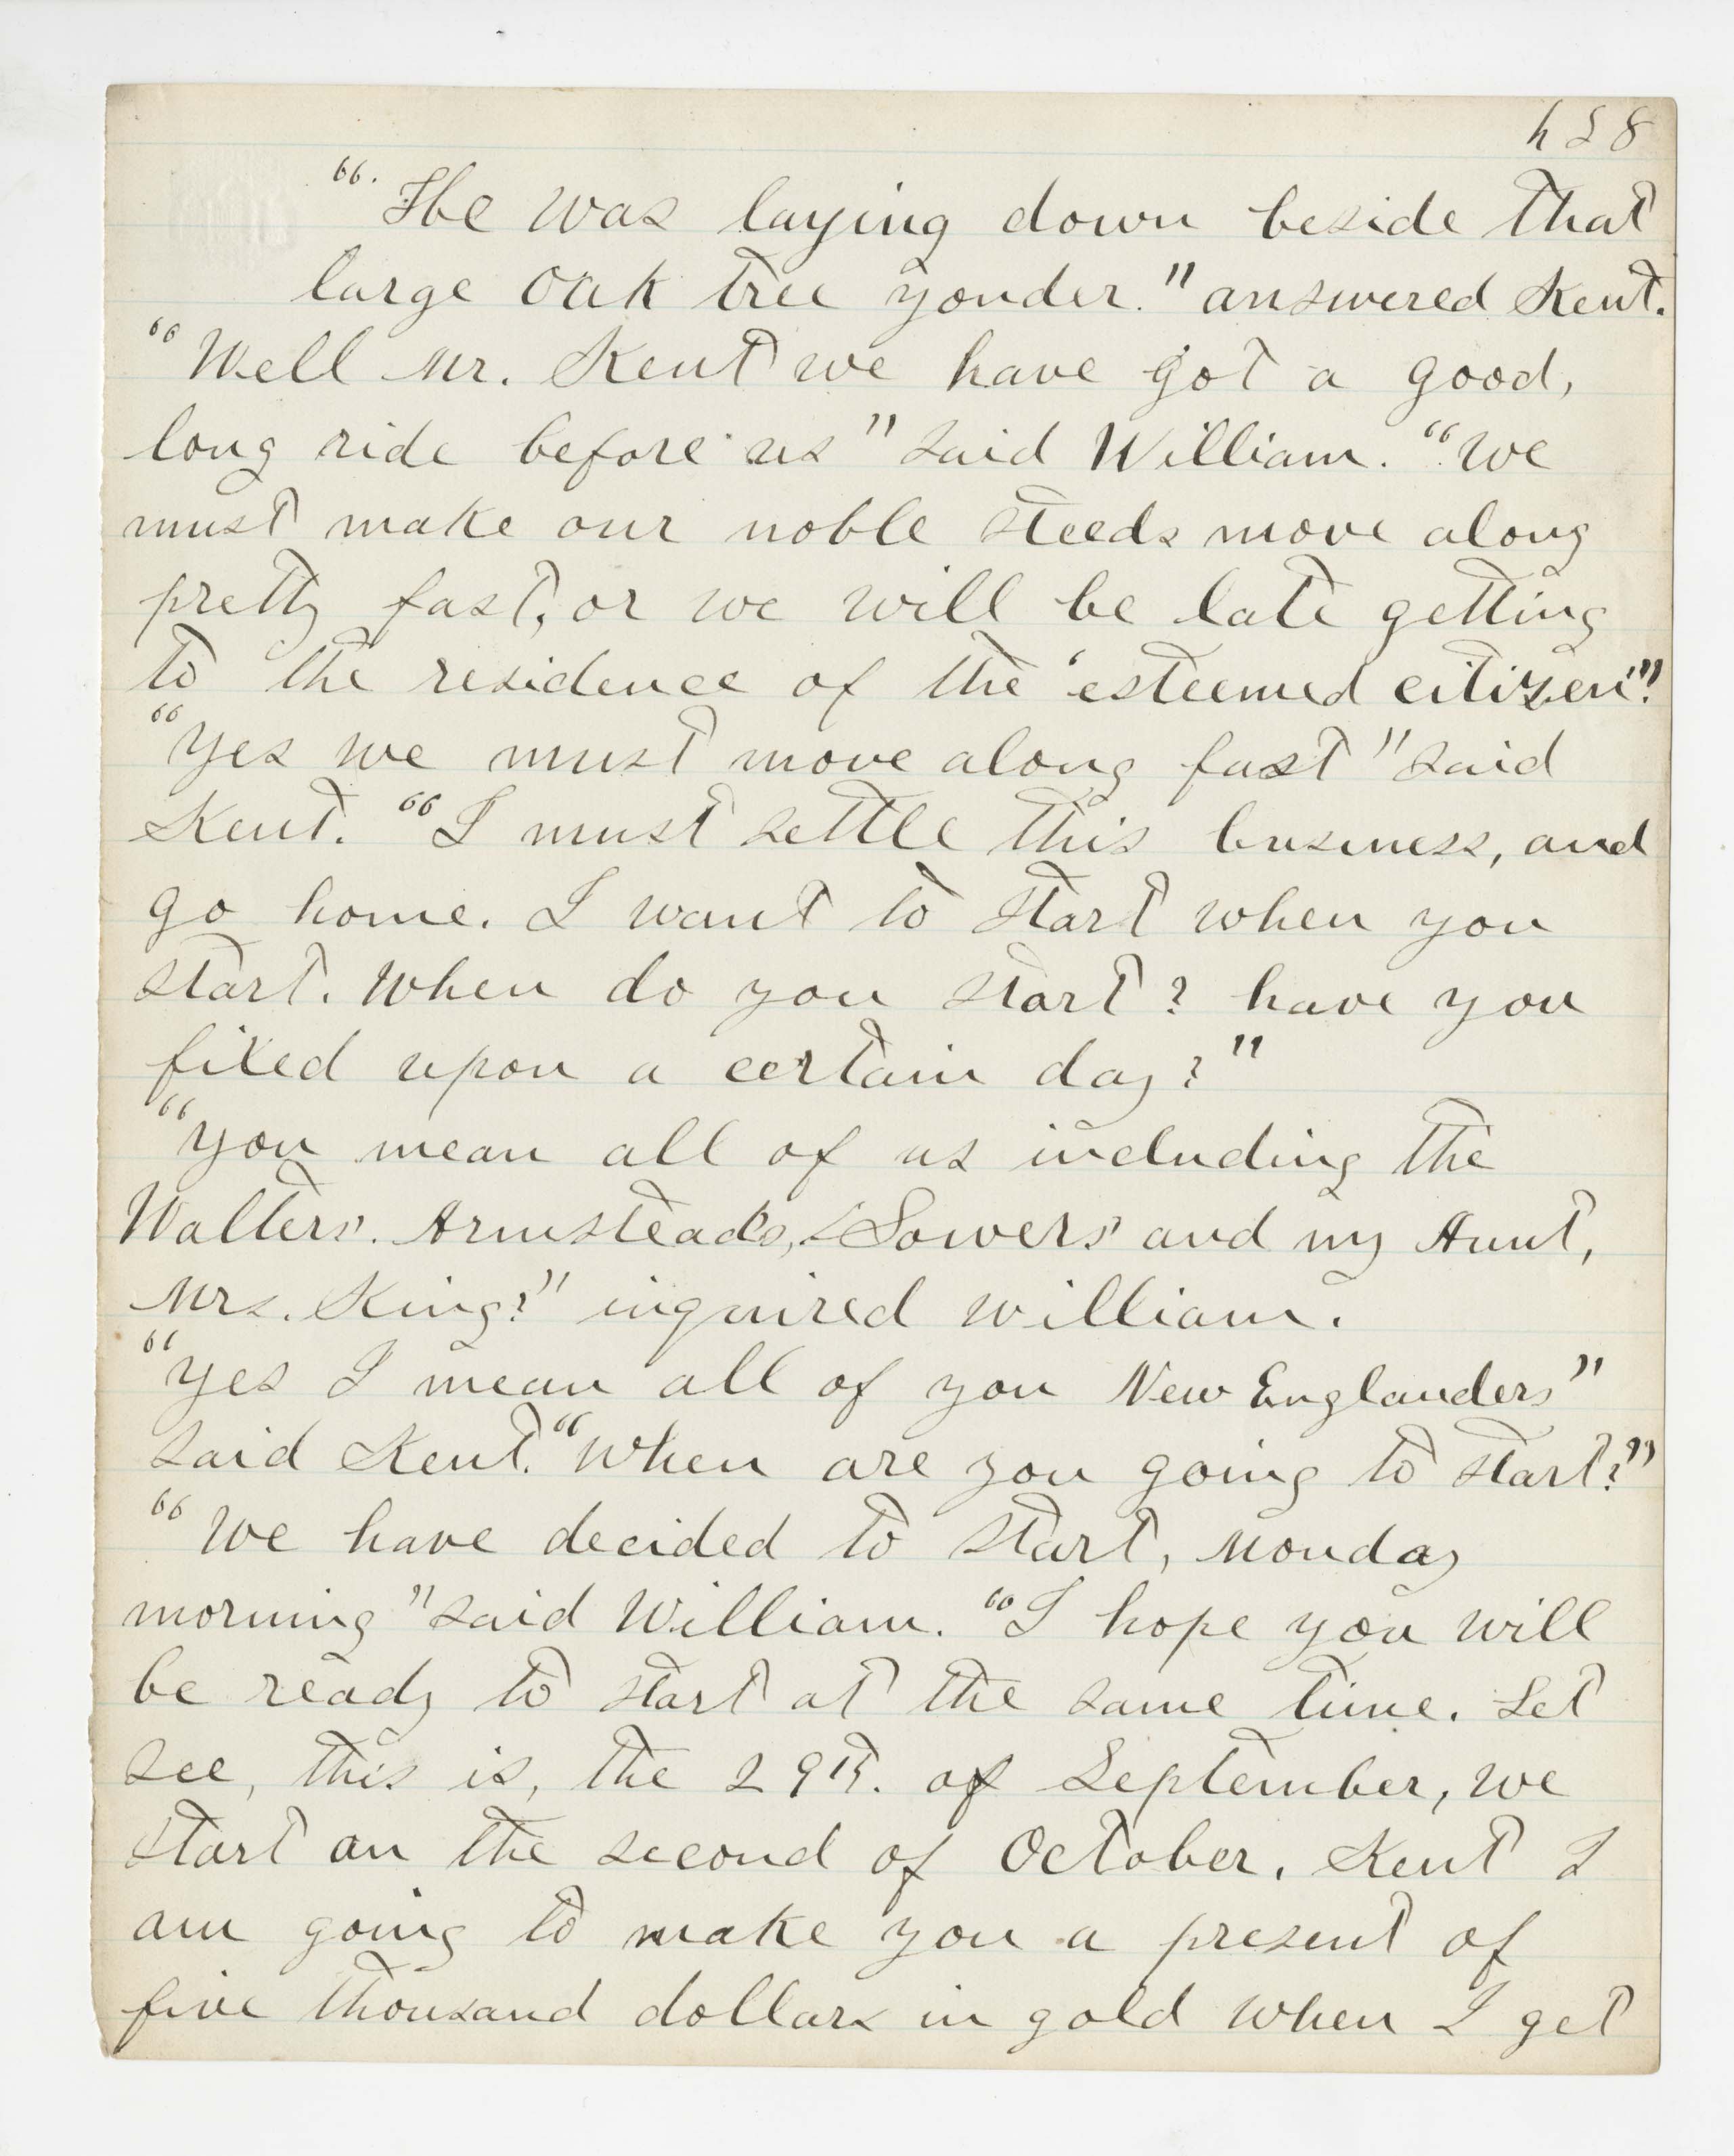 458
"He was laying down beside that
large oak tree yonder." answered Kent.
"Well Mr. Kent we have got a good,
long ride before us" said William. "We
must make our noble steeds move along
pretty fast, or we will be late getting
to the residence of the 'esteemed citizen'"!
"Yes we must move along fast" said
Kent. "I must settle this business, and
go home. I want to start when you
start. When do you start? have you
fixed upon a certain day?"
"You mean all of us including the
Walters'. Armsteads, Sowers' and my Aunt,
Mrs. King?" inquired William.
"Yes I mean all of you New Englanders"
said Kent. "When are you going to start?"
"We have decided to start, Monday
morning" said William. "I hope you will
be ready to start at the same time. Let
see, this is, the 29th. of September, we
start an the second of October. Kent I
am going to make you a present of
five thousand dollars in gold when I get